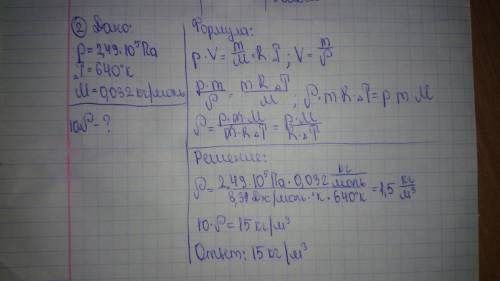 ② Дано:
p=2,49·10⁵Па
ₐT=640°К
M=0,032 кг/моль
10ρ-?
Формула:
p·V=m/M·R·ₐT; V=m/ρ
p·m/ρ=m·R·ₐT/M; ρ·m·R·ₐT=p m M
ρ=p·m·M/m·R·ₐT=p·M/R·ₐT
Решение:
ρ=2,49·10⁵Па·0,032 кг/моль / 8,31Дж/моль·°К·640°К=1,5 кг/м³
10·ρ=15кг/м³
Ответ: 15кг/м³